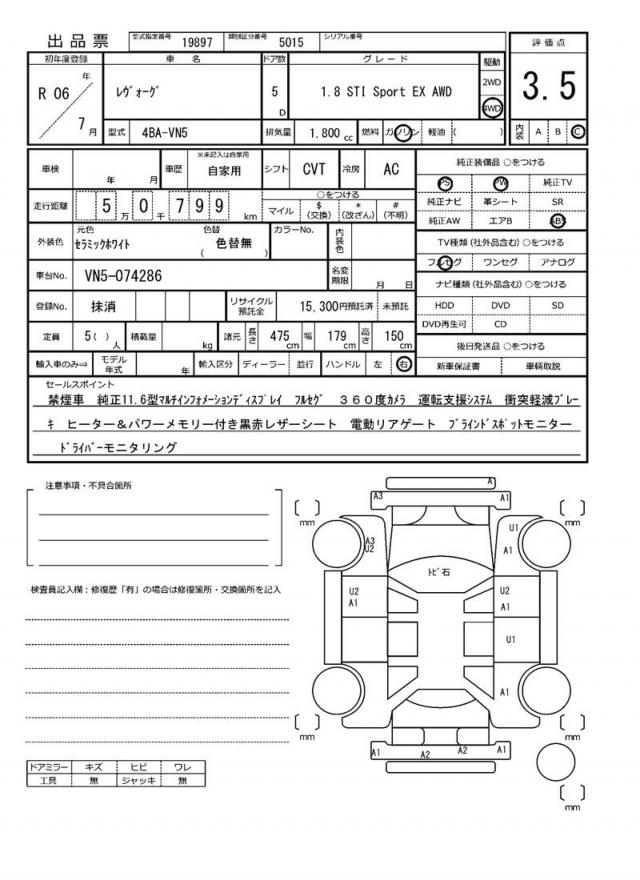 出品票 型式指定番号 19897 類別区分番号 5015 シリアル番号
評価点
3.5
内装 A B C
初年度登録 車名 ドア数 グレード 駆動
R 06 年 7 月
レヴォーグ 5 D 1.8 STI Sport EX AWD 2WD 4WD
型式 4BA-VN5 排気量 1.800 cc 燃料 ガソリン 軽油 ( )
車検 年 月 車歴 ※未記入は自家用 自家用 シフト CVT 冷房 AC
走行距離 5万0千799 km ○をつける マイル $(交換) *(改ざん) #(不明)
外装色 元色 セラミックホワイト 色替 ( 色替無 ) カラーNo. 内装色
車台No. VN5-074286 名変期限 月 日
登録No. 抹消 リサイクル預託金 15,300円預託済 未預託
定員 5( ) 人 積載量 kg 諸元 長さ 475 cm 幅 179 cm 高さ 150 cm
輸入車のみ⇒ モデル年式 年 輸入区分 ディーラー 並行 ハンドル 左 右
純正装備品 ○をつける
PS PW 純正TV
純正ナビ 革シート SR
純正AW エアB ABS
TV種類(社外品含む) ○をつける
フルセグ ワンセグ アナログ
ナビ種類(社外品含む) ○をつける
HDD DVD SD
DVD再生可 CD
後日発送品 ○をつける
新車保証書 車輌取説
セールスポイント
禁煙車 純正11.6型マルチインフォメーションディスプレイ フルセグ 360度カメラ 運転支援システム 衝突軽減ブレー
キ ヒーター&パワーメモリー付き黒赤レザーシート 電動リアゲート ブラインドスポットモニター
ドライバーモニタリング
注意事項・不具合箇所
検査員記入欄：修復歴「有」の場合は修復箇所・交換箇所を記入
ドアミラー キズ ヒビ ワレ
工具 無 ジャッキ 無
A
A3 A1
mm mm
A3 U2 U1 A1
トビ石
U2 A1 U2 A1
U1
A1
mm mm
A1 A2 A2 A1
mm